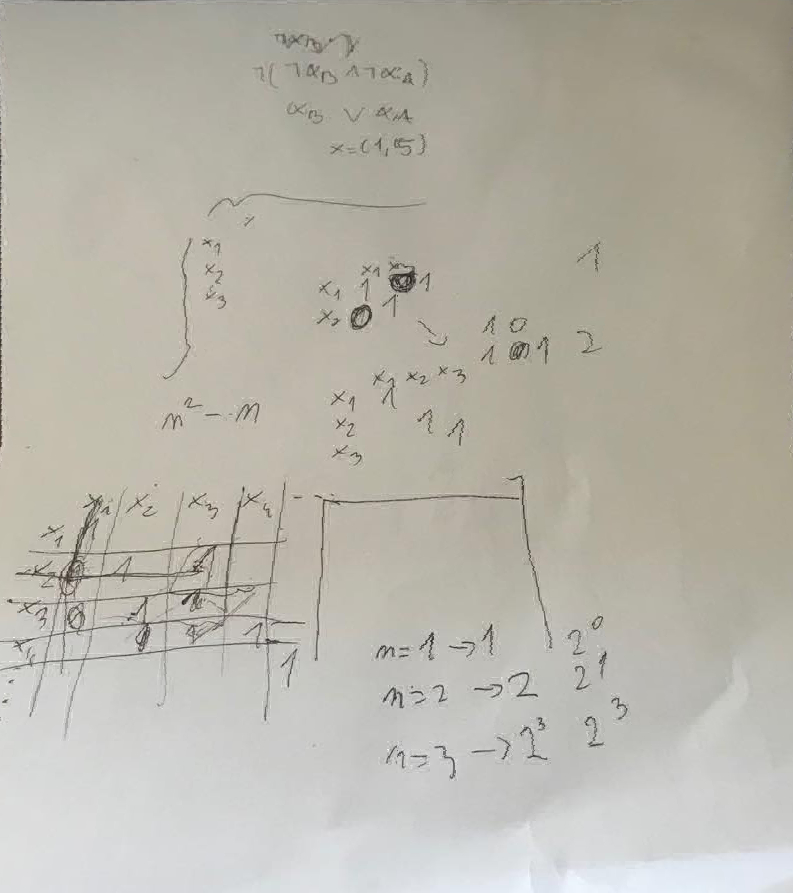 ¬(¬α_B ∧ ¬α_A)
α_B ∨ α_A
x = (1,5)
x₁
x₂
x₃
x₁
x₁ 1 1
x₂ 1
1
1 0
1 1 2
x₁ x₂ x₃
x₁ 1
x₂ 1 1
x₃
n² - n
x₂ x₃ x₄
x₁
x₂ 1
x₃ 0 1
x₄ 1
1
n = 1 → 1 2⁰
n = 2 → 2 2¹
n = 3 → 2³ 2³